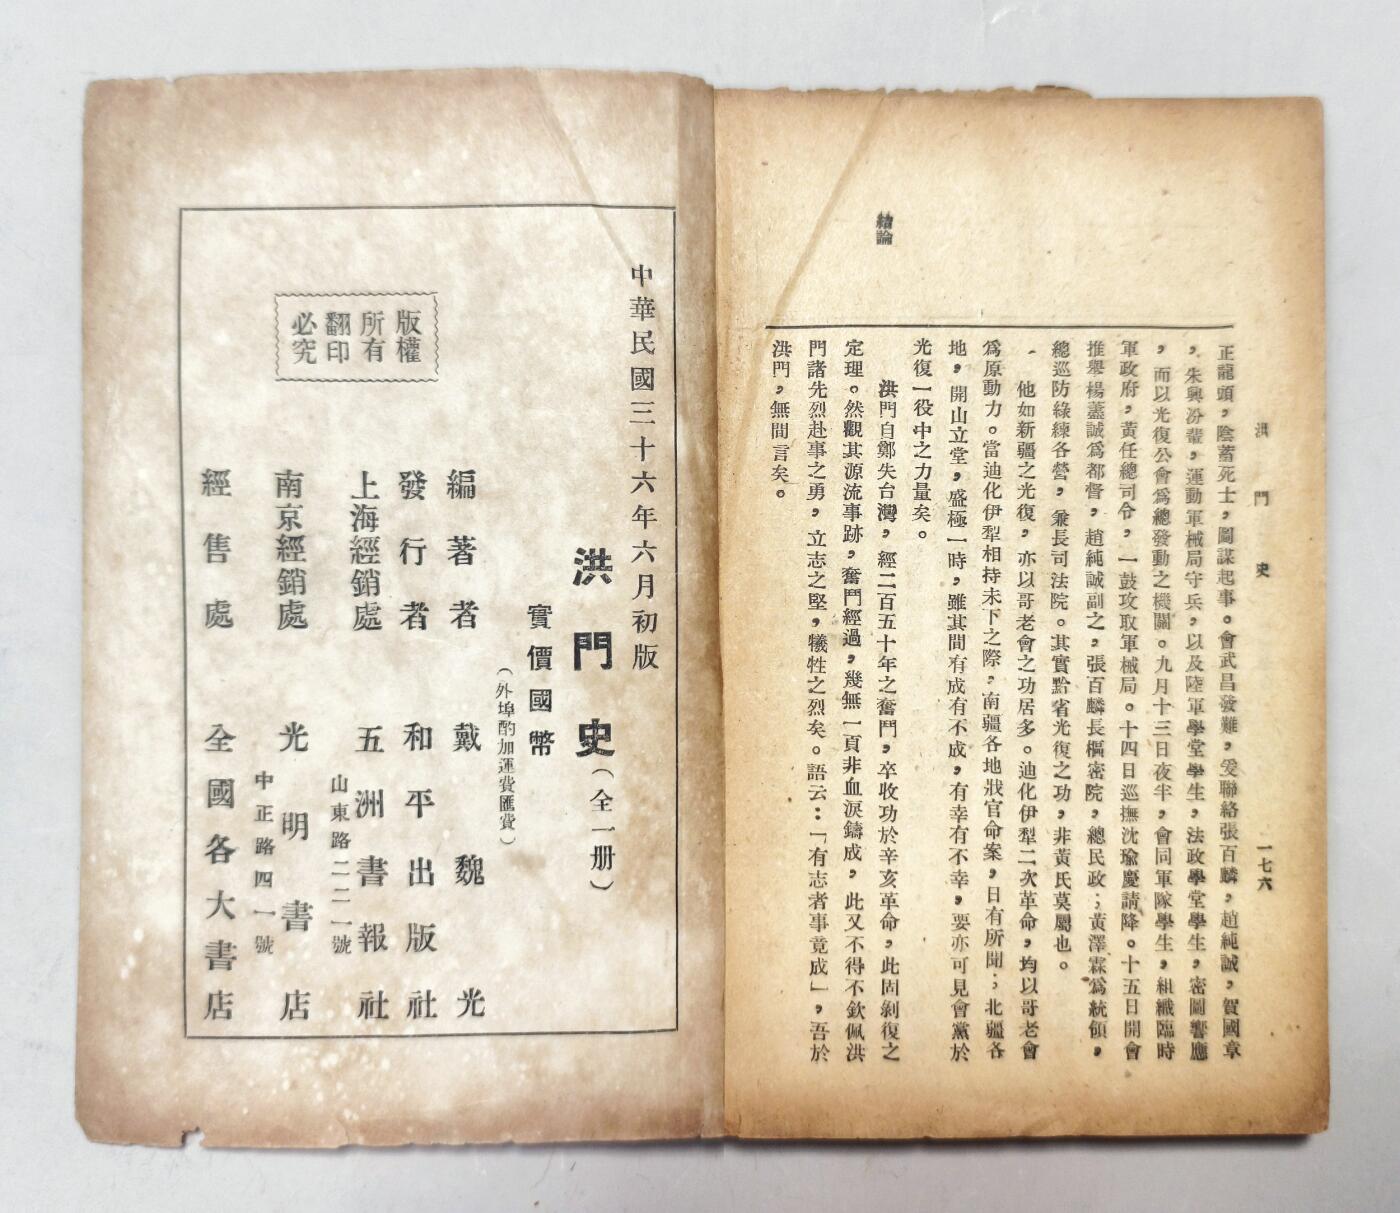 洪門史
一七六
結論
正龍頭，陰蓄死士，圖謀起事。會武昌發難，爰聯絡張百麟，趙純誠，賀國章
，朱興汾輩，運動軍械局守兵，以及陸軍學堂學生，法政學堂學生，密圖響應
，而以光復公會爲總發動之機關。九月十三日夜半，會同軍隊學生，組織臨時
軍政府，黃任總司令，一鼓攻取軍械局。十四日巡撫沈瑜慶請降。十五日開會
推舉楊藎誠爲都督，趙純誠副之，張百麟長樞密院，總民政；黃澤霖爲統領，
總巡防綠練各營，兼長司法院。其實黔省光復之功，非黃氏莫屬也。
他如新疆之光復，亦以哥老會之功居多。迪化伊犁二次革命，均以哥老會
爲原動力。當迪化伊犁相持未下之際，南疆各地戕官命案，日有所聞；北疆各
地，開山立堂，盛極一時，雖其間有成有不成，有幸有不幸，要亦可見會黨於
光復一役中之力量矣。
洪門自鄭失台灣，經二百五十年之奮鬥，卒收功於辛亥革命，此固剝復之
定理。然觀其源流事跡，奮鬥經過，幾無一頁非血淚鑄成，此又不得不欽佩洪
門諸先烈赴事之勇，立志之堅，犧牲之烈矣。語云：「有志者事竟成」，吾於
洪門，無間言矣。
中華民國三十六年六月初版
洪門史（全一册）
實價國幣
（外埠酌加運費匯費）
編著者 戴魏光
發行者 和平出版社
上海經銷處 五洲書報社
山東路二二一號
南京經銷處 光明書店
中正路四一號
經售處 全國各大書店
版權
所有
翻印
必究